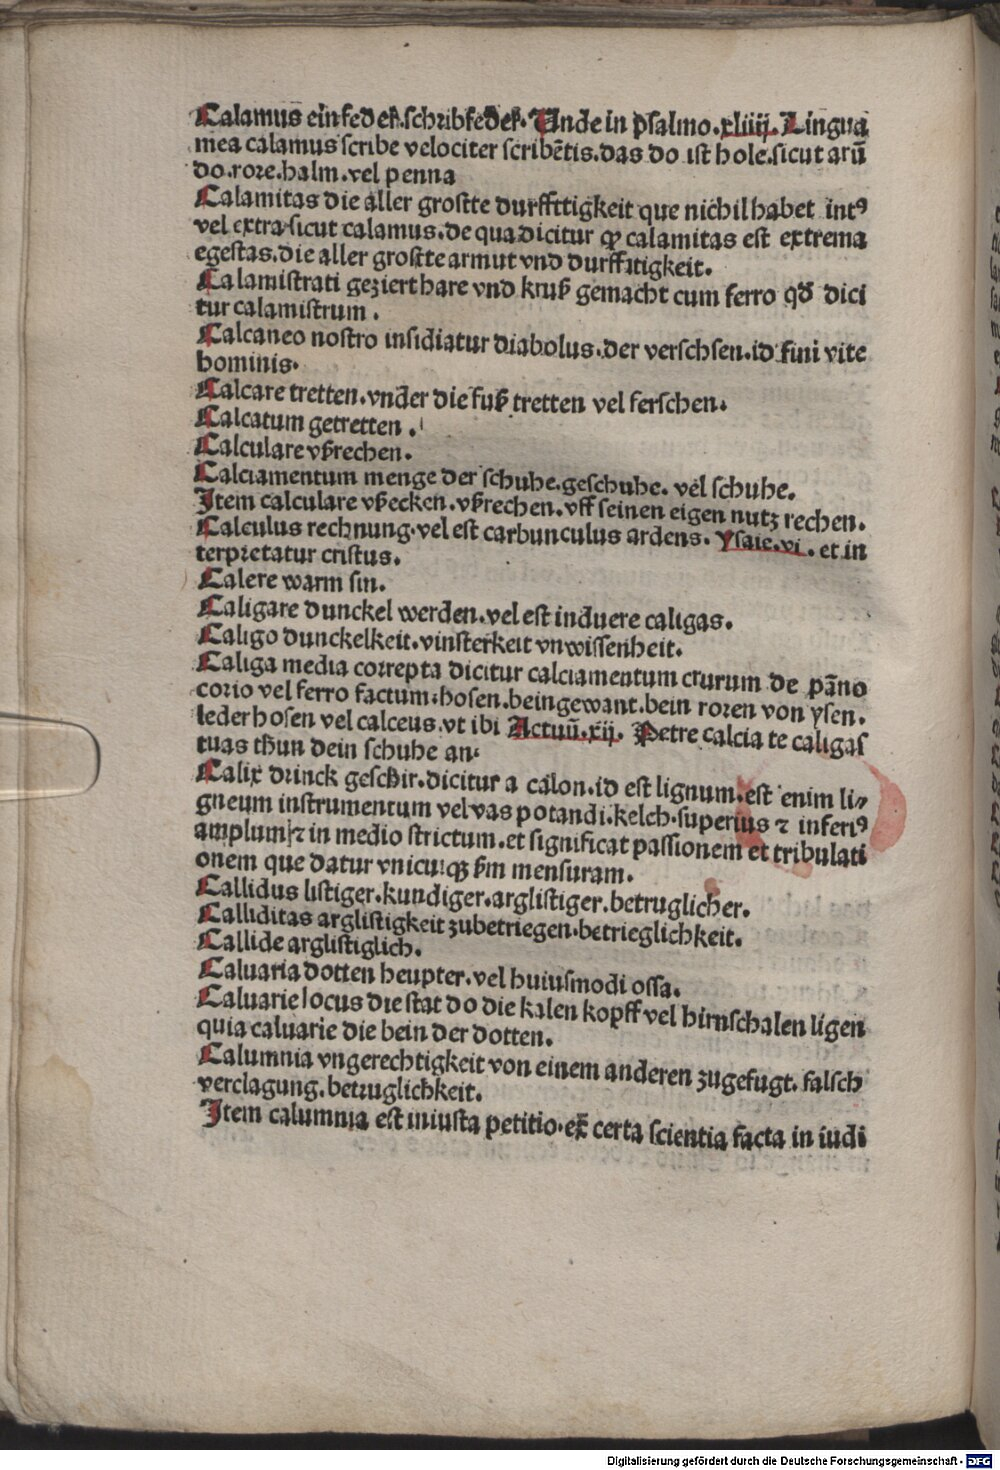 Calamus ein feder.schribfeder. Unde in psalmo.xliiij. Lingua
mea calamus scribe velociter scribētis.das do ist hole.sicut arū
do.rore.halm.vel penna
Calamitas die aller grostte durfftigkeit que nichil habet intꝰ
vel extra.sicut calamus.de qua dicitur ꝙ calamitas est extrema
egestas.die aller grostte armut vnd durfftigkeit.
Calamistrati geziert hare vnd kruß gemacht cum ferro qđ dici
tur calamistrum.
Calcaneo nostro insidiatur diabolus.der verschsen.id fini vite
hominis.
Calcare tretten.vnder die fuß tretten vel ferschen.
Calcatum getretten.
Calculare vßrechen.
Calciamentum menge der schuhe.geschuhe. vel schuhe.
Item calculare vßecken.vßrechen.vff seinen eigen nutz rechen.
Calculus rechnung.vel est carbunculus ardens. Ysaie.vi. et in
terpretatur cristus.
Calere warm sin.
Caligare dunckel werden.vel est induere caligas.
Caligo dunckelkeit.vinsterkeit vnwissenheit.
Caliga media correpta dicitur calciamentum crurum de pāno
corio vel ferro factum.hosen.beingewant.bein roren von ysen.
lederhosen vel calceus.vt ibi Actuū.xij. Petre calcia te caligas
tuas thun dein schuhe an.
Calix drinck geschir.dicitur a calon.id est lignum.est enim li⸗
gneum instrumentum vel vas potandi.kelch.superius ⁊ inferiꝰ
amplum ⁊ in medio strictum.et significat passionem et tribulati
onem que datur vnicuiqꝫ ẜm mensuram.
Callidus listiger.kundiger.arglistiger.betruglicher.
Calliditas arglistigkeit zubetriegen.betrieglichkeit.
Callide arglistiglich.
Caluaria dotten heupter.vel huiusmodi ossa.
Caluarie locus die stat do die kalen kopff vel hirnschalen ligen
quia caluarie die bein der dotten.
Calumnia vngerechtigkeit von einem anderen zugefugt. falsch
verclagung.betruglichkeit.
Item calumnia est iniusta petitio.ex̄ certa scientia facta in iudi
Digitalisierung gefördert durch die Deutsche Forschungsgemeinschaft - DFG